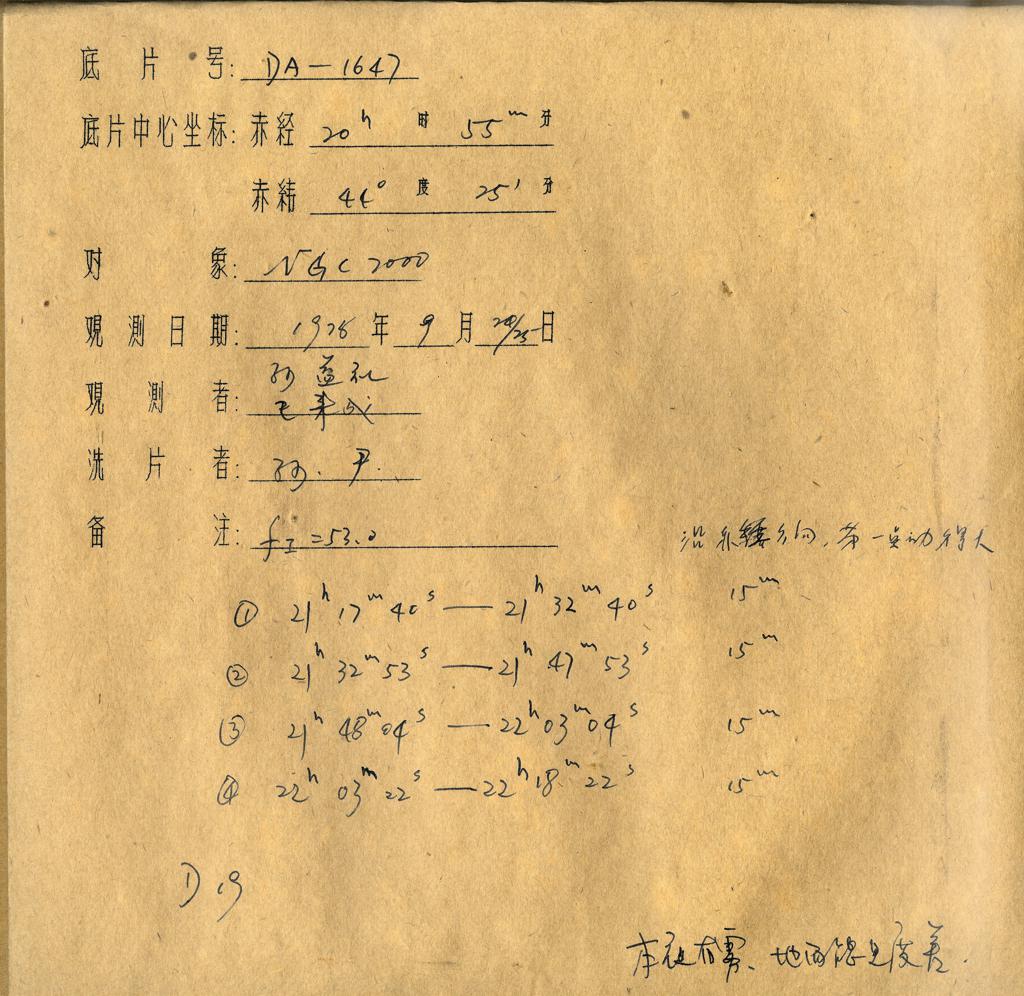 底片号: DA-1647
底片中心坐标: 赤经 20ʰ 时 55ᵐ 分
赤緯 44° 度 25′ 分
对象: NGC 7000
观测日期: 1978年 9月 24/25日
孙益礼
观测者: 王来成
洗片者: 孙. 尹.
备注: f工=53.0
沿赤 方向, 第一点动得大
① 21ʰ 17ᵐ 40ˢ — 21ʰ 32ᵐ 40ˢ 15ᵐ
② 21ʰ 32ᵐ 53ˢ — 21ʰ 47ᵐ 53ˢ 15ᵐ
③ 21ʰ 48ᵐ 04ˢ — 22ʰ 03ᵐ 04ˢ 15ᵐ
④ 22ʰ 03ᵐ 22ˢ — 22ʰ 18ᵐ 22ˢ 15ᵐ
D19
本夜有雾、地面能见度差.